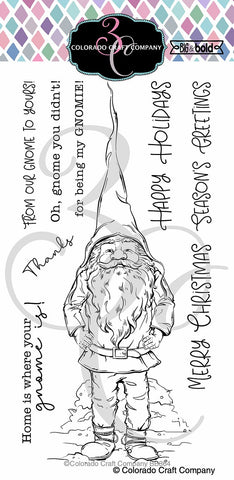 3C
COLORADO CRAFT COMPANY
BIG & bold
FROM OUR GNOME TO YOURS!
Oh, gnome you didn't!
for being my GNOMIE!
HAPPY HOLIDAYS
SEASON'S GREETINGS
Thanks
Home is where your
gnome is!
MERRY CHRISTMAS
©Colorado Craft Company
© Colorado Craft Company